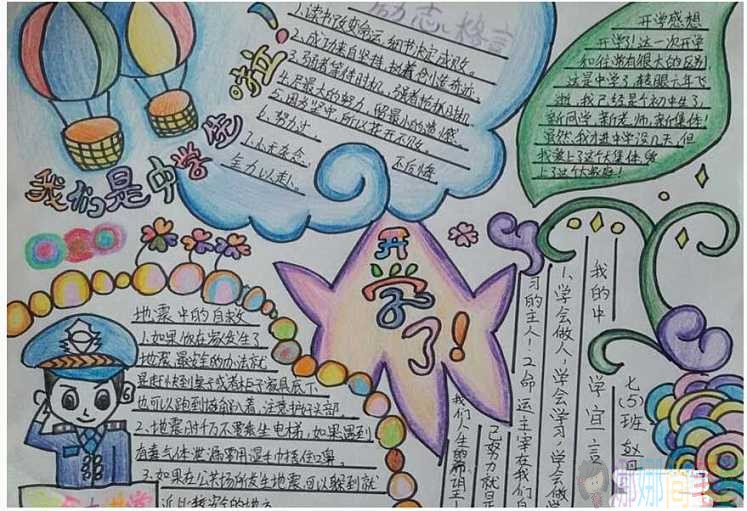 我们是中学生啦!
励志格言
1.读书改变命运,细节决定成败。
2.成功来自坚持,执着创造奇迹。
3.弱者等待时机,强者创造时机
4.尽最大的努力,留最小的遗憾。
5.因为坚冲,所以花开不败。
6.努力过
不后悔
全力以赴。
开学感想
开学了!这一次开学
和往常有很大的区别
这是中学了,转眼六年飞
逝,我已经是个初中生了,
新同学,新老师,新集体!
虽然,我才进中学没几天,但
我爱上了这个大集体,爱
上了这个大家庭!
开学了!
地震中的自救
1.如果你在家发生了
地震,最安全的办法就
是赶快到桌子或者柜子家具底下
也可以跑到墙角蹲着,注意护好头部
2.地震时千万不要乘坐电梯,如果遇到
有毒气体泄漏要用湿毛巾捂住口鼻。
3.如果在公共场所发生地震,可以躲到就
近比较安全的地方
我的中
学宣言
七(5)班
1、学会做人,学会学习,学会做
习的主人!2.命运主宰在我们自
己努力就是
我们人生的